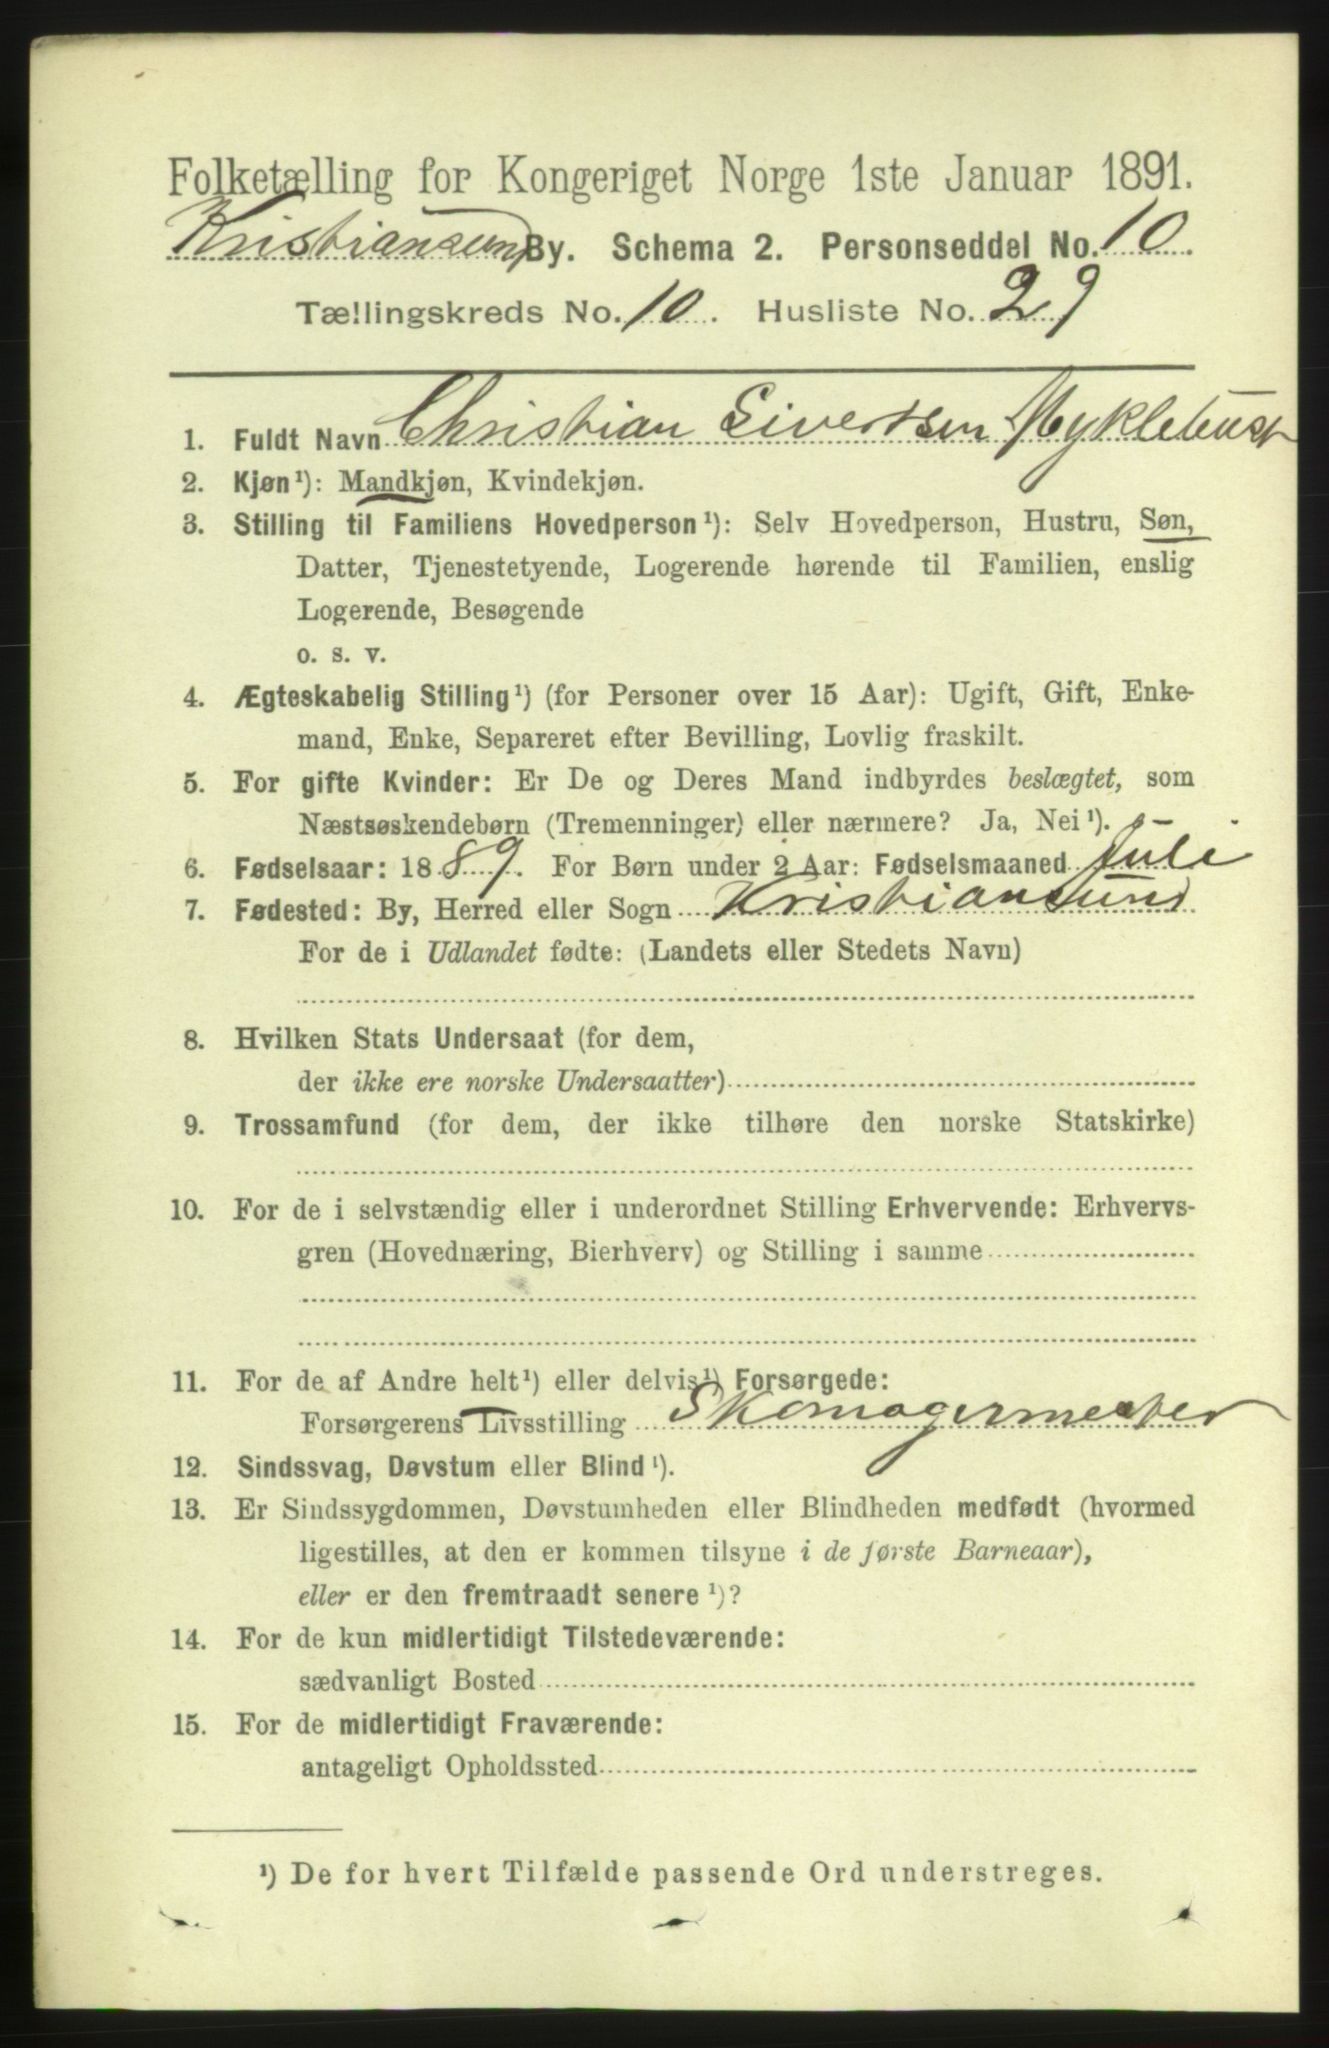 Folketælling for Kongeriget Norge 1ste Januar 1891.
Kristiansund By. Schema 2. Personseddel No. 10
Tællingskreds No. 10. Husliste No. 29
1. Fuldt Navn Christian Sivertsen Myklebust
2. Kjøn¹): Mandkjøn, Kvindekjøn.
3. Stilling til Familiens Hovedperson¹): Selv Hovedperson, Hustru, Søn,
Datter, Tjenestetyende, Logerende hørende til Familien, enslig
Logerende, Besøgende
o. s. v.
4. Ægteskabelig Stilling¹) (for Personer over 15 Aar): Ugift, Gift, Enke-
mand, Enke, Separeret efter Bevilling, Lovlig fraskilt.
5. For gifte Kvinder: Er De og Deres Mand indbyrdes beslægtet, som
Næstsøskendebørn (Tremenninger) eller nærmere? Ja, Nei¹).
6. Fødselsaar: 1889. For Børn under 2 Aar: Fødselsmaaned Juli
7. Fødested: By, Herred eller Sogn Kristiansund
For de i Udlandet fødte: (Landets eller Stedets Navn)
8. Hvilken Stats Undersaat (for dem,
der ikke ere norske Undersaatter)
9. Trossamfund (for dem, der ikke tilhøre den norske Statskirke)
10. For de i selvstændig eller i underordnet Stilling Erhvervende: Erhvervs-
gren (Hovednæring, Bierhverv) og Stilling i samme
11. For de af Andre helt¹) eller delvis¹) Forsørgede:
Forsørgerens Livsstilling Skomagermester
12. Sindssvag, Døvstum eller Blind¹).
13. Er Sindssygdommen, Døvstumheden eller Blindheden medfødt (hvormed
ligestilles, at den er kommen tilsyne i de første Barneaar),
eller er den fremtraadt senere¹)?
14. For de kun midlertidigt Tilstedeværende:
sædvanligt Bosted
15. For de midlertidigt Fraværende:
antageligt Opholdssted
¹) De for hvert Tilfælde passende Ord understreges.